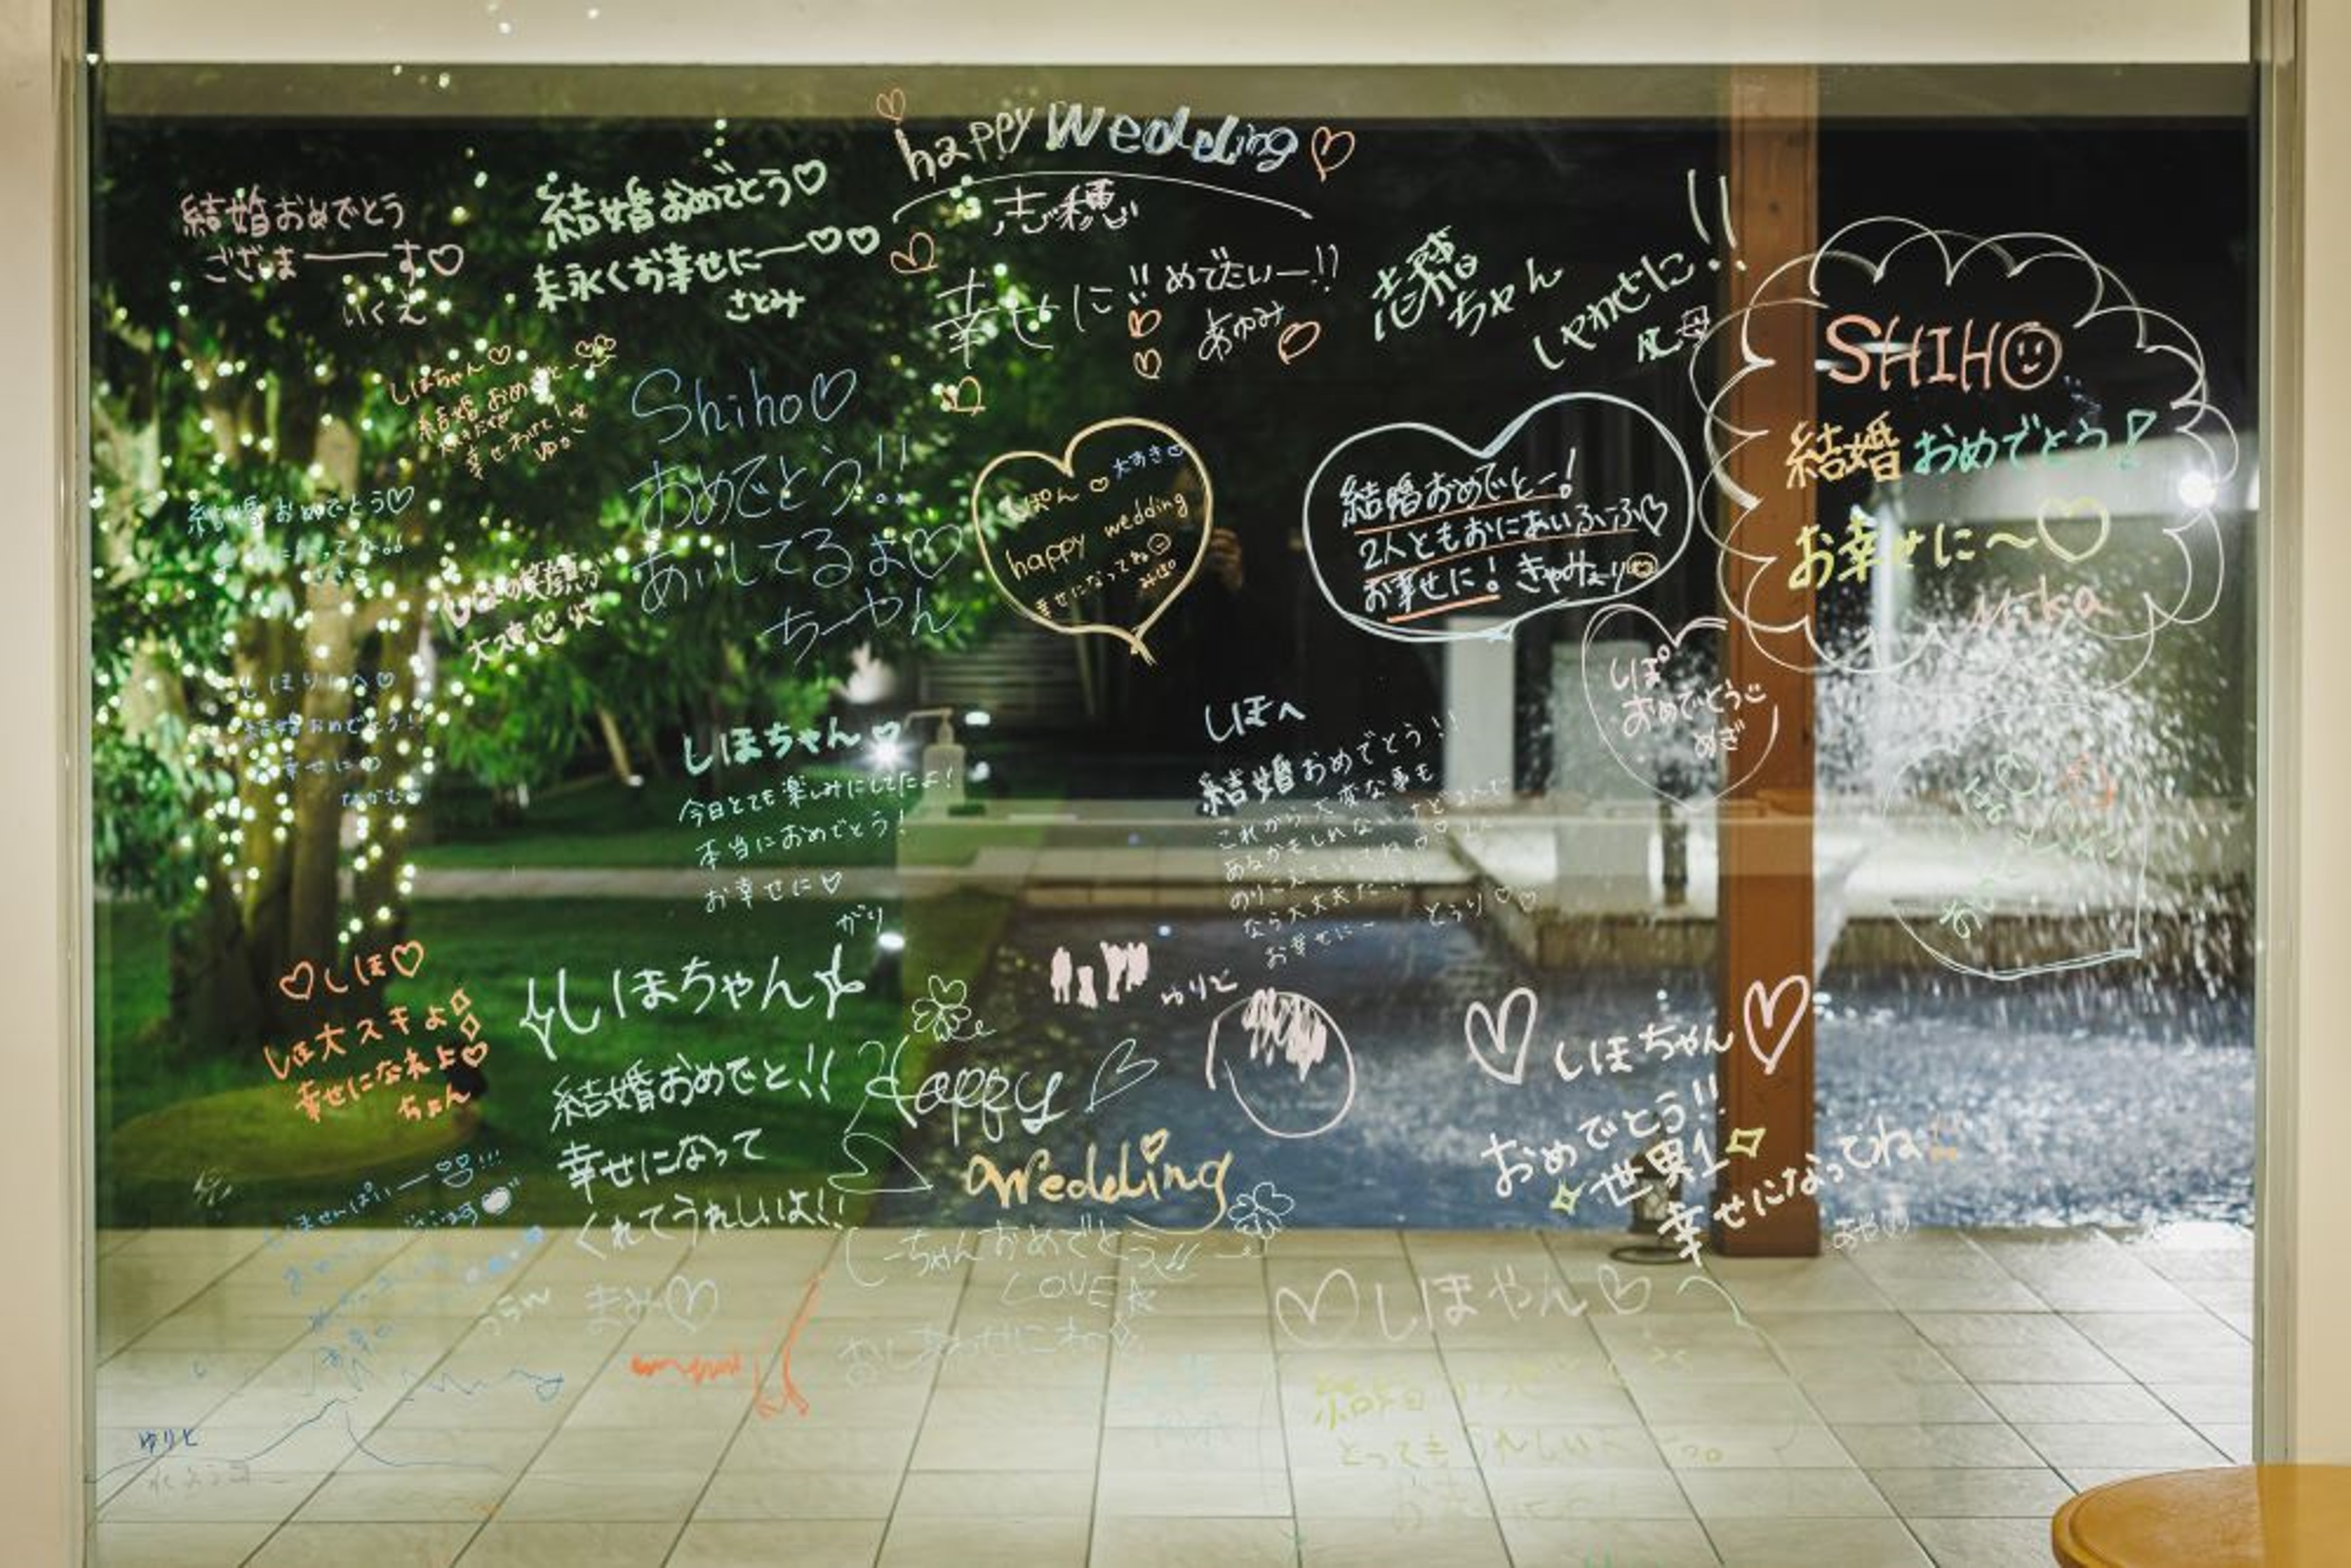 happy Wedding
志穂
幸せに!!
めでたいー!!
あゆみ
結婚おめでとう
ございまーーす♡
いくえ
結婚おめでとう♡
末永くお幸せにー♡♡
さとみ
志穂
ちゃん
しやわせに!!
父母
SHIHO
結婚おめでとう!
お幸せに〜♡
Mika
しほちゃん♡
結婚おめでとー
Shiho♡
おめでとう!!
あいしてるよ♡
ちーやん
しぽん♡大すき
happy wedding
幸せになってね
みぽ
結婚おめでとー!
2人ともおにあいふーふ♡
お幸せに!きゃみぇり
結婚おめでとう♡
しほの笑顔が
大スキ
しぽ
おめでとう
めぎ
しほりんへ♡
結婚おめでとう!!
幸せに
ながむ
しほちゃん♡
今日とても楽しみにしてたよ!
本当におめでとう!
お幸せに♡
がり
しほへ
結婚おめでとう!!
これから大変な事も
あるかもしれないけど
のりこえていってね
なら大丈夫だ
お幸せにー
とうり♡♡
♡しほ♡
しほ大スキよ
幸せになれよ♡
ちょん
しほちゃん
結婚おめでと!!
幸せになって
くれてうれしいよ!!
まみ♡
ゆりと
Happy♡
Wedding
しーちゃんおめでとう
LOVE☆
おしあわせにね
♡しほちゃん♡
おめでとう!!
世界1
幸せになってね
あやの
♡しほやん♡
結婚
とってもうれしい
うらん
ゆりと